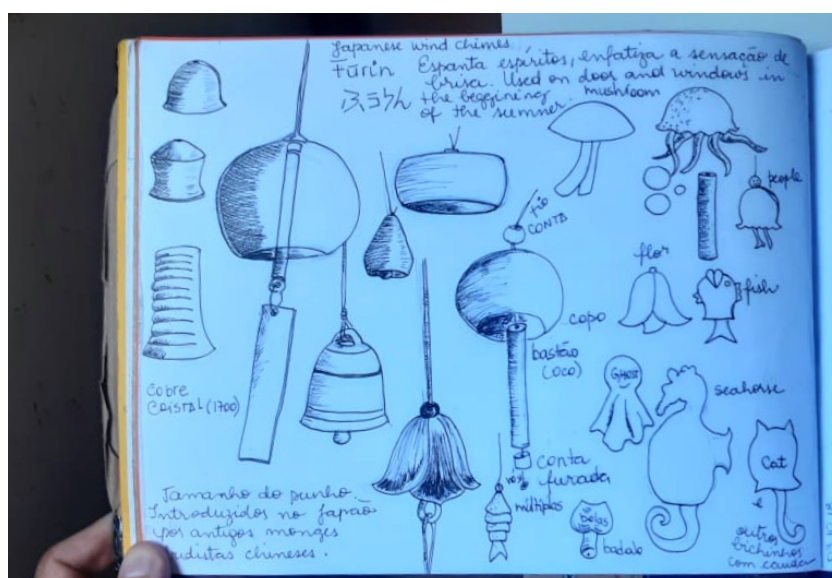 Japanese wind chimes,
Fūrin Espanta espíritos, enfatiza a sensação de
brisa. Used on door and windows in
ふうりん the beggining
of the summer.
mushroom
people
fio
CONTA
flor
fish
copo
bastão
(oco)
Ghost
seahorse
cobre
CRISTAL (1700)
conta
furada
nós
múltiplos
Cat
e
outros
bichinhos
com cauda
bolas
badalo
Tamanho do punho.
Introduzidos no Japão
por antigos monges
budistas chineses.